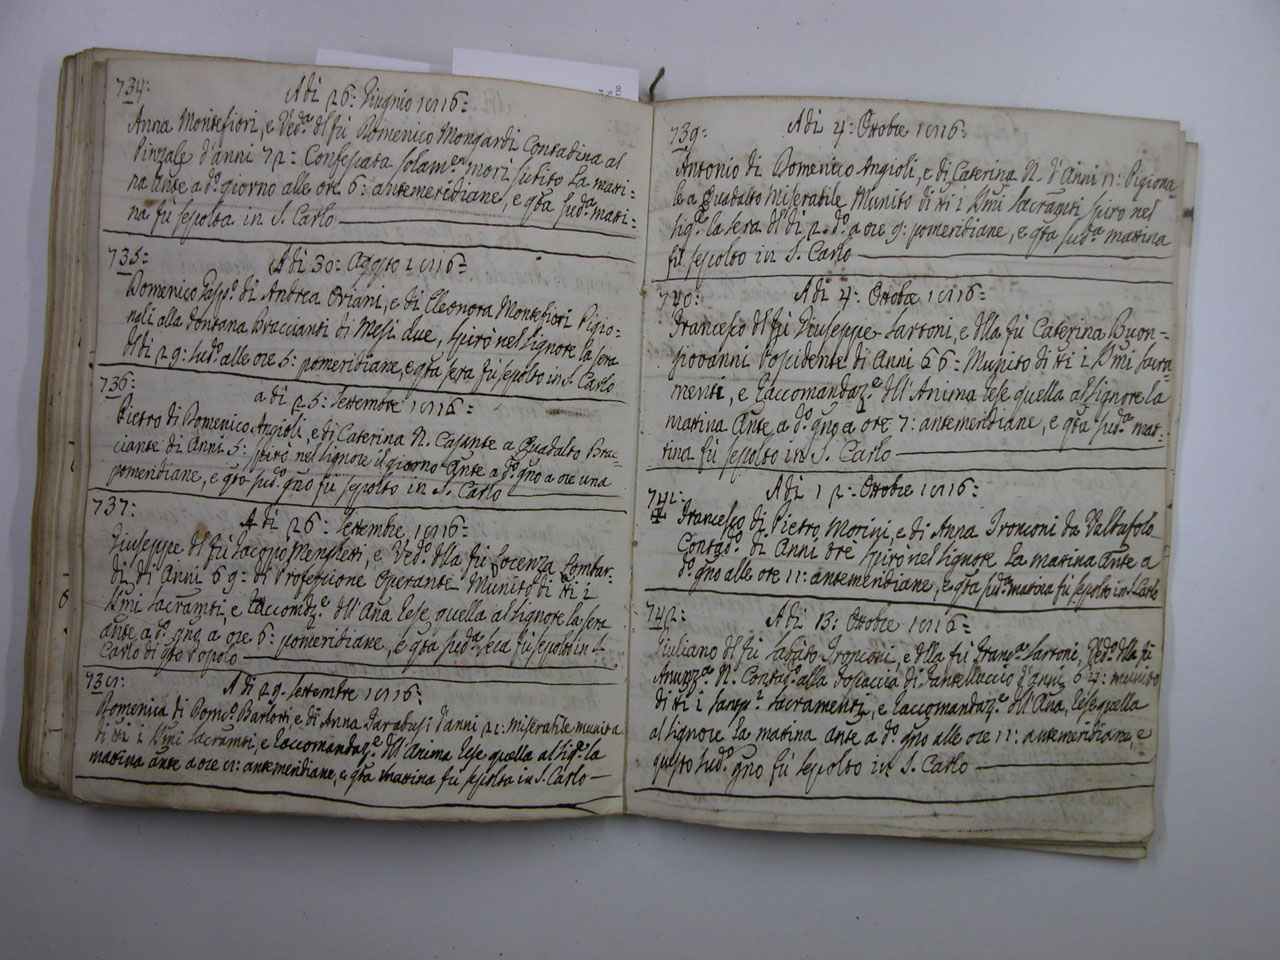 734:
A di 26: Giugnio 1816:
Anna Montefiori, e Ved.a del fù Domenico Mongardi Contadina al
Pinzale d'anni 72: Confessata solam.e morì subito La mati-
na ante a d.o giorno alle ore 6: antemeridiane, e qta sud.a mati-
na fù sepolta in S. Carlo
735:
A di 30: Agosto 1816:
Domenico di Andrea Oriani, e di Eleonora Montefiori Pigio-
nali alla Fontana Braccianti di Mesi due, spirò nel Signore la sera
del di 29: sud.o alle ore 5: pomeridiane, e qta sera fù sepolto in S. Carlo
736:
a di 25: Settembre 1816:
Pietro di Domenico Angioli, e di Caterina N. Casante a Guadalto Brac-
ciante di Anni 5: spirò nel Signore il giorno Ante a d.o gno a ore una
pomeridiane, e qto sud.o gno fù sepolto in S. Carlo
737:
A di 26: Settembre, 1816:
Giuseppe del fù Jacopo Menghetti, e Ved.o della fù Lombar-
di di Anni 69: di Professione Operante Munito di tti i
SSmi Sacramti, e Raccomdz.e dell'Ana Rese quella al Signore la sera
ante, a d.o gno, a ore 6: pomeridiane, e qta sud.a sera fù sepolto in S.
Carlo di qto Popolo
738:
A di 29. Settembre 1816:
Domenica di Dom.co Barlotti, e di Anna Tarabusi d'anni 21: Miserabile munita
di tti i SSmi Sacramti, e Raccomandaz.e dell'Anima Rese quella al Sig.e la
matina ante a ore 8: antemeridiane, e qta matina fù sepolta in S. Carlo
739:
A di 4: Ottobre 1816:
Antonio di Domenico Angioli, e di Caterina N. d'Anni 11: Pigiona
le a Guadalto Miserabile Munito di tti i SSmi Sacramti spirò nel
Sig.e la sera del di 2. d.o a ore 9: pomeridiane, e qta sud.a matina
fù sepolto in S. Carlo
740:
A di 4: Ottobre 1816:
Francesco del fù Giuseppe Sartoni, e della fù Caterina Buon-
giovanni Possidente di Anni 66: Munito di tti i SSmi Sacra-
menti, e Raccomandaz.e dell'Anima Rese quella al Signore la
matina Ante a d.o gno a ore 7: antemeridiane, e qta sud.a mat-
tina fù sepolto in S. Carlo
741:
A di 12: Ottobre 1816:
Francesco di Pietro Morini, e di Anna Tronconi da Valtufolo
Contad.o di Anni tre spirò nel Signore La matina Ante a
d.o gno alle ore 11: antemeridiane, e qta sud.a matina fù sepolto in S. Carlo
742:
A di 13: Ottobre 1816:
Giuliano del fù Sabato Tronconi, e della fù Fran.ca Sartoni, Ved.o della fù
N. Contad.o alla di Santelluccio d'Anni 64: munito
di tti i Santiss.i Sacramenti, e Raccomandaz.e dell'Ana, Rese quella
al Signore La matina ante a d.o gno alle ore 11: antemeridiane, e
questo sud.o gno fù sepolto in S. Carlo